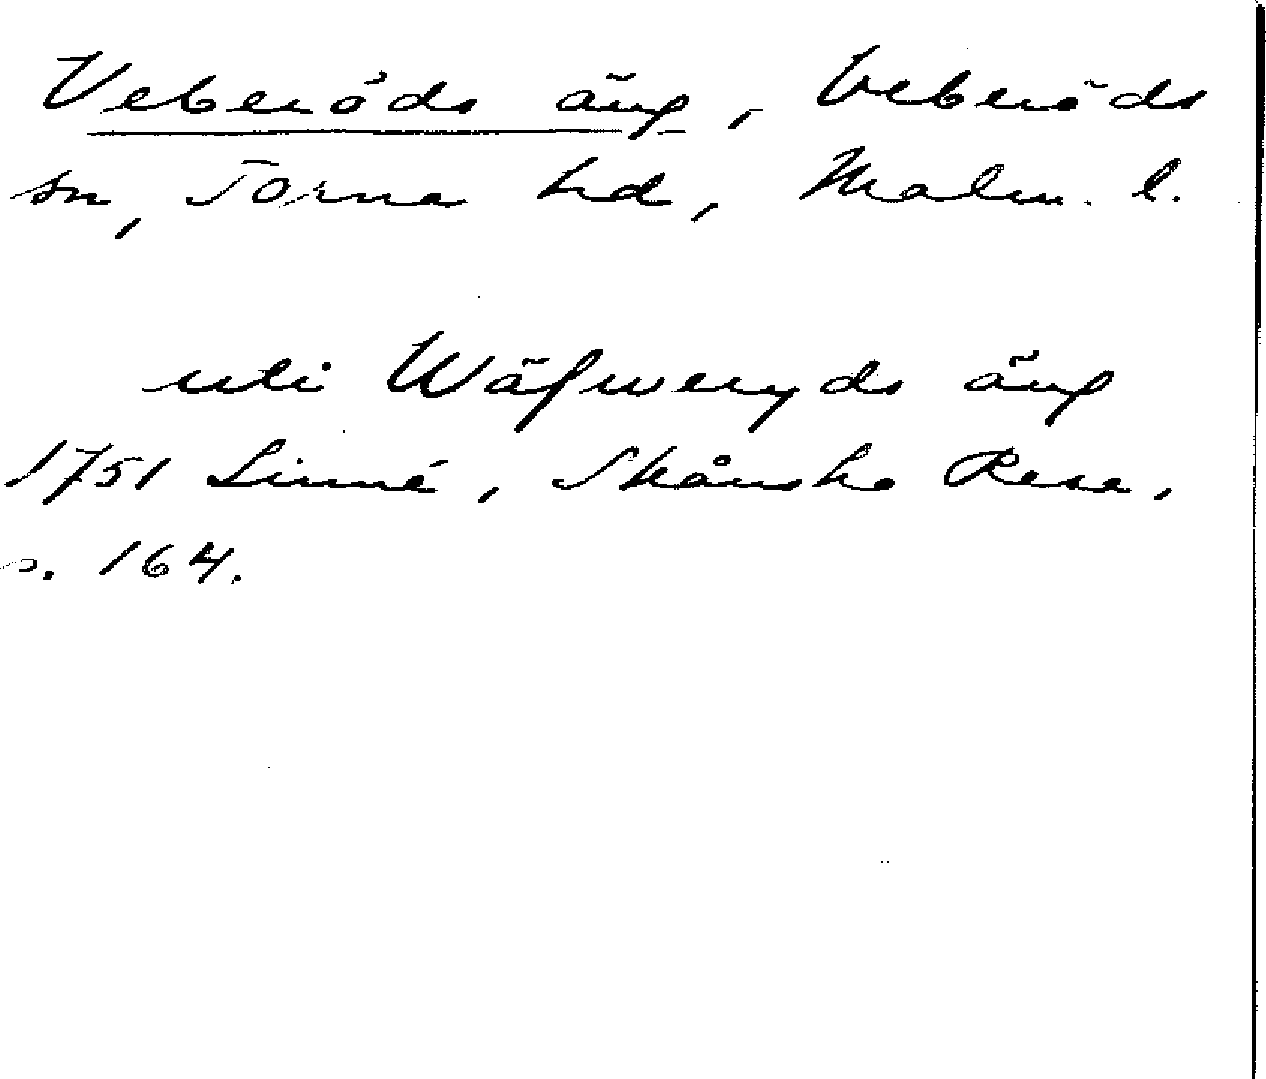 Veberöds äng, Veberöds
sn, Torna hd, Malm. l.
uti Wäfweryds äng
1751 Linné, Skånska Resa,
s. 164.